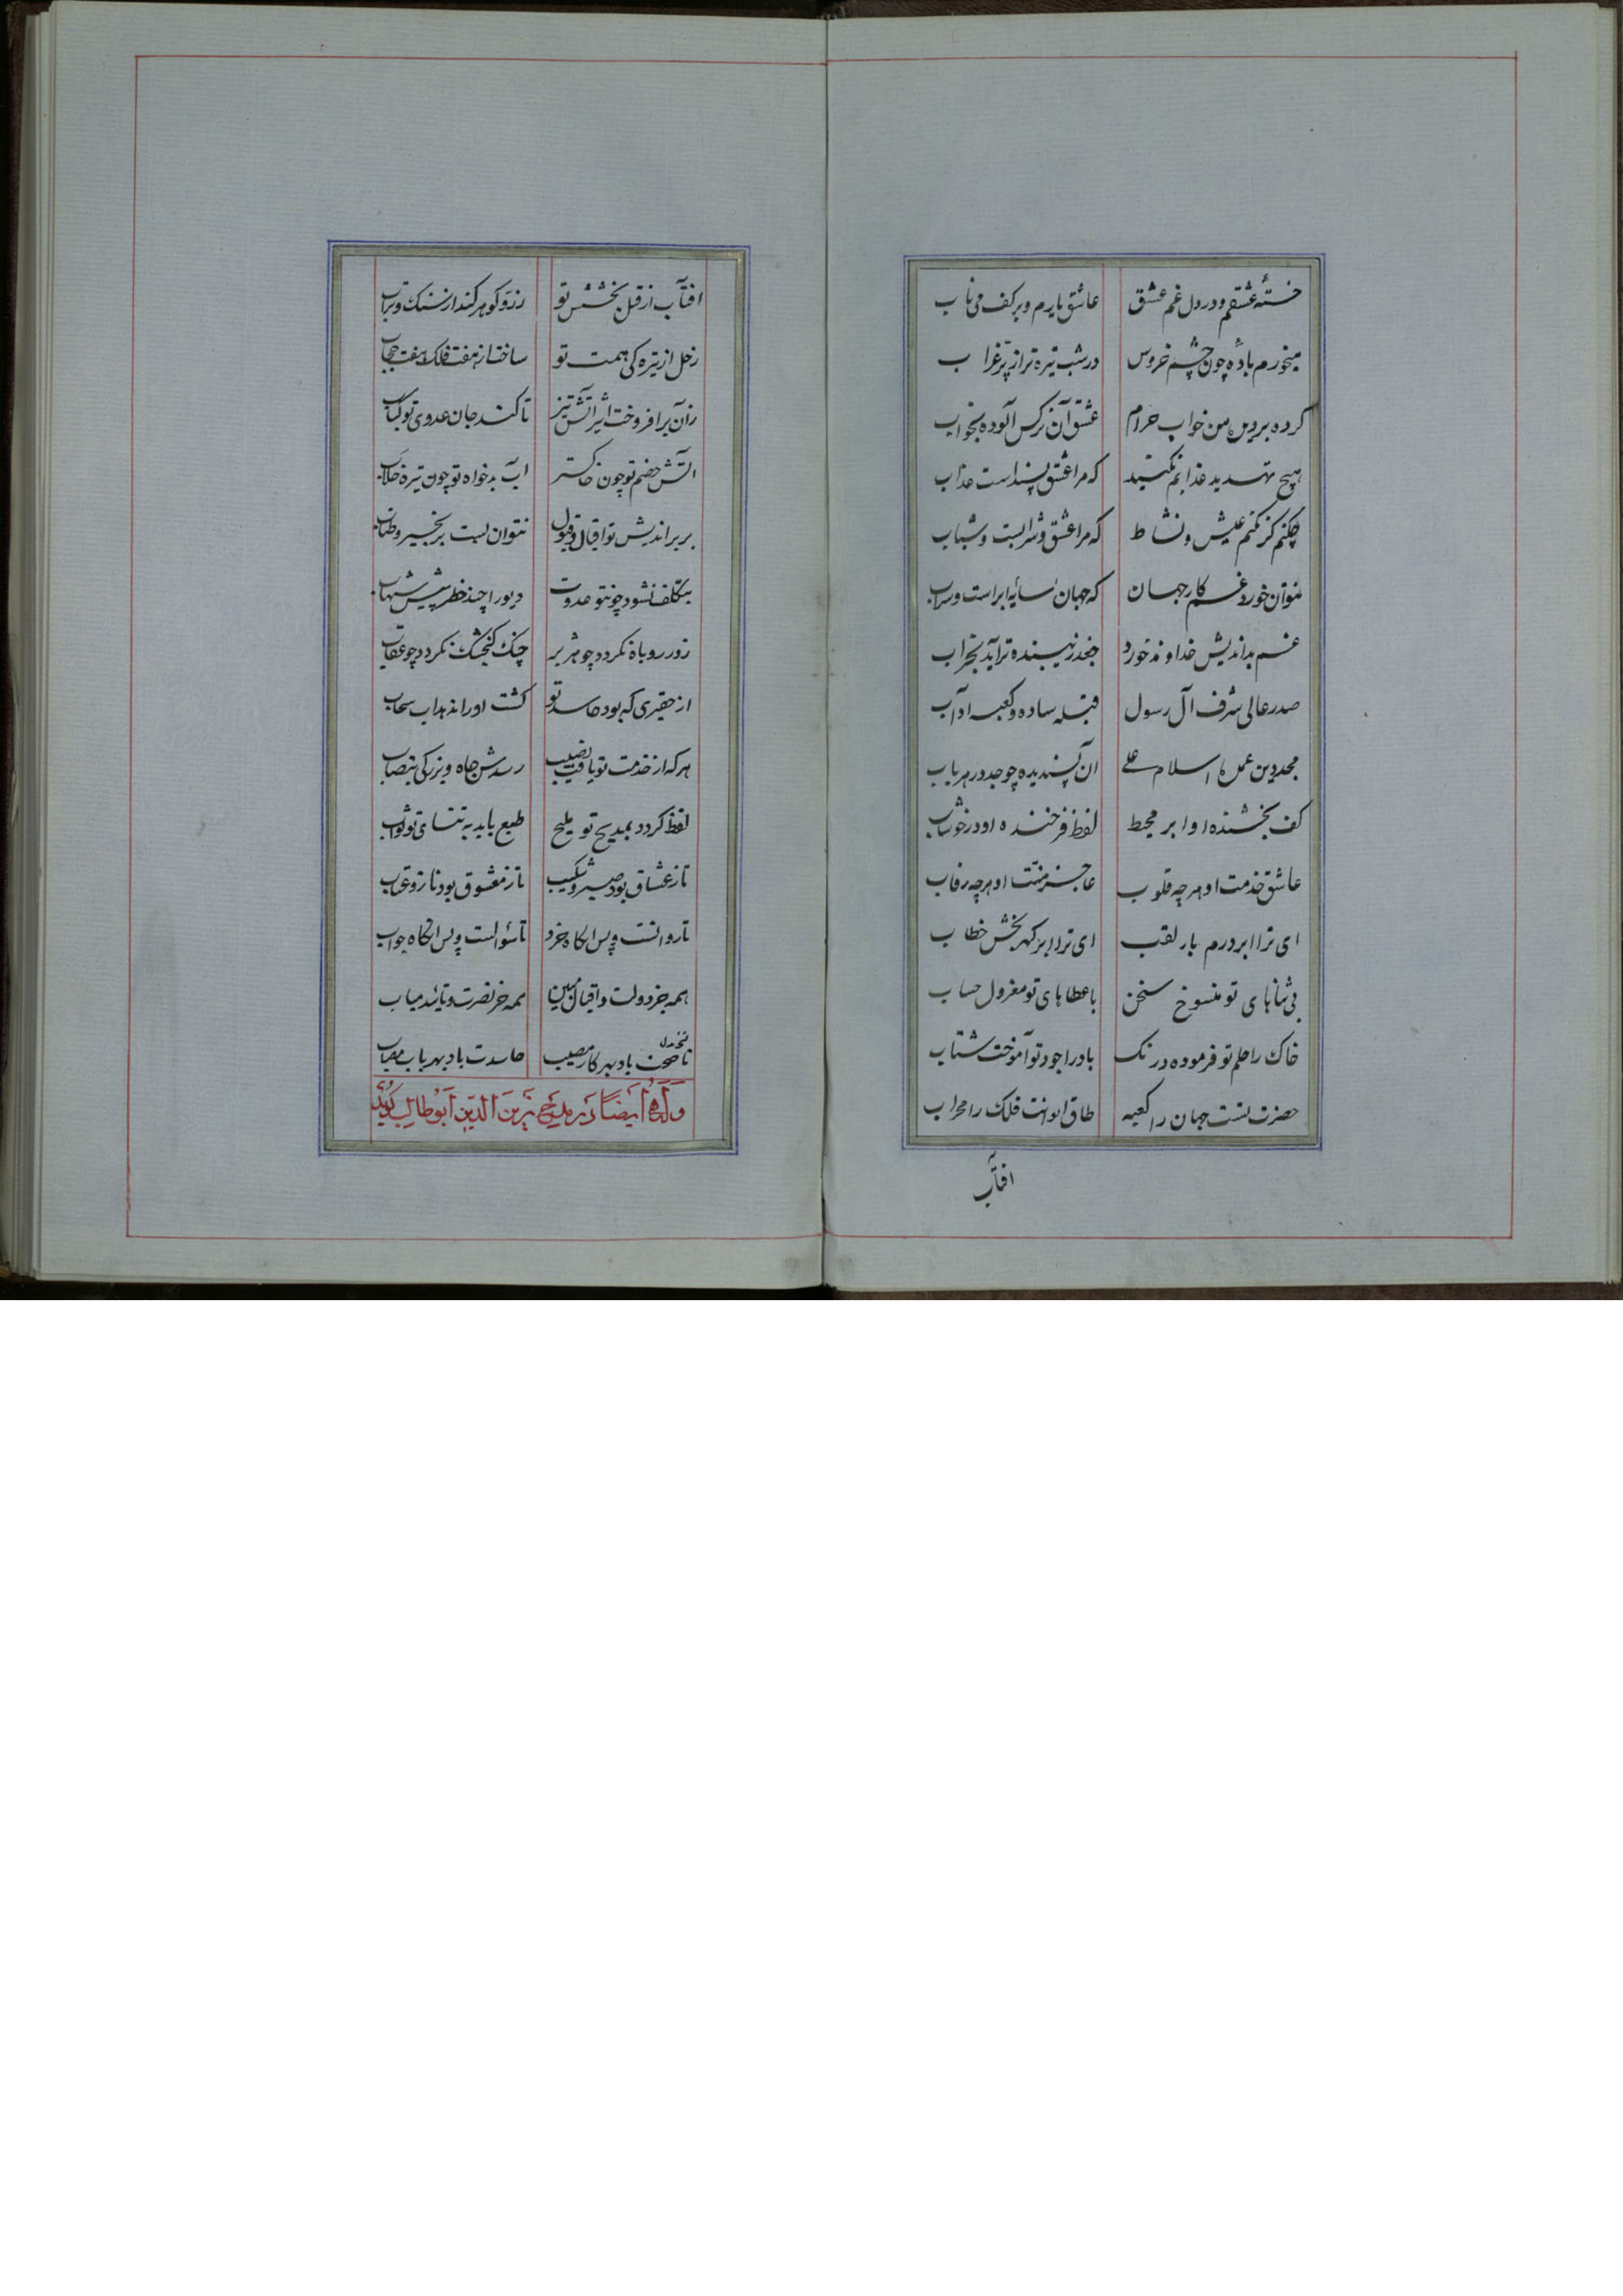 خستهٔ عشقم و در دل غم عشق عاشق یارم و بر کف می ناب
میخورم بادهٔ چون چشم خروس در شب تیره تر از پرّ غراب
کرده بر دیدهٔ من خواب حرام عشق آن نرکس آلوده بخواب
هیچ تهدید عذابم نکنید که مرا عشق پسنداست عذاب
چکنم کر نکنم عیش و نشاط که مرا عشق و شرابست و شباب
نتوان خورد غم کار جهان که جهان سایهٔ ابراست و سراب
غم بداندیش خداوند خورد جغد زیبنده تر آید بخراب
صدر عالی شرف آل رسول قبله ساده و کعبه اداب
مجد دین عمدهٔ اسلام علی ان پسندیده چو جد در هر باب
کف بخشنده او ابر محیط لفظ فرخنده او در خوشاب
عاشق خدمت او هر چه قلوب عاجز منت او هر چه رقاب
ای ترا ابر درم بار لقب ای ترا ابر کهر بخش خطاب
بی ثناهای تو منسوخ سخن با عطاهای تو معزول حساب
خاک را حلم تو فرموده درنک باد را جود تو آموخت شتاب
حضرت تست جهان را کعبه طاق ایوانت فلک را محراب
افتاب
افتاب از قبل بخشش تو زر و کوهر کند از سنک و تراب
زحل از تیره کی همت تو ساخته از هفت فلک هفت حجاب
زان برافروخت اثیر آتش تیز تا کند جان عدوی تو کباب
اتش خصم تو چون خاکستر اب بدخواه تو چون تیره خلاب
بر براندیش تو اقبال و قبول نتوان بست بزنجیر و طناب
بتکلف نشود چو نتو عدوت دیو را چند خطر پیش شهاب
زور روباه نکردد چو هژبر چنک کنجشک نکردد چو عقاب
از حقیری که بود حاسد تو کشت او را نداد آب سحاب
هر که از خدمت تو یافت نصیب رسدش جاه و بزرکی بنصاب
لفظ کردد بمدیح تو ملیح طبع یابد به ثنای تو ثواب
تا ز عشاق بود صبر و شکیب تا ز معشوق بود ناز و عتاب
تا روانست و پس انکاه خرد تا سئوالست و پس انکاه جواب
همه جز دولت و اقبال مبین همه جز نصرت و تائید میاب
ناصحت باد بهر کار مصیب حاسدت باد بهر باب مصاب
وله ایضا در مدیح زین الدین ابوطالب کوید